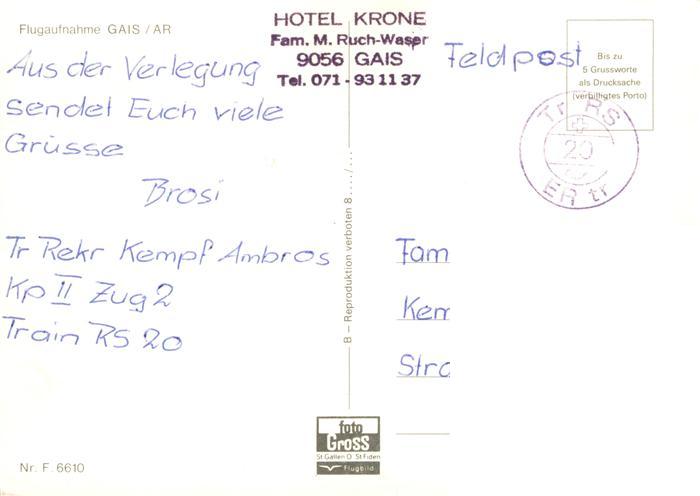 Flugaufnahme GAIS / AR
HOTEL KRONE
Fam. M. Ruch-Waser
9056 GAIS
Tel. 071 - 93 11 37
Feldpost
Bis zu
5 Grussworte
als Drucksache
(verbilligtes Porto)
Tr RS
20
ER tr
Aus der Verlegung
sendet Euch viele
Grüsse
Brosi
Tr Rekr Kempf Ambros
Kp II Zug 2
Train RS 20
Fam
Kem
Stra
B – Reproduktion verboten 8..../...
foto
Gross
St Gallen O St Fiden
Flugbild
Nr. F. 6610